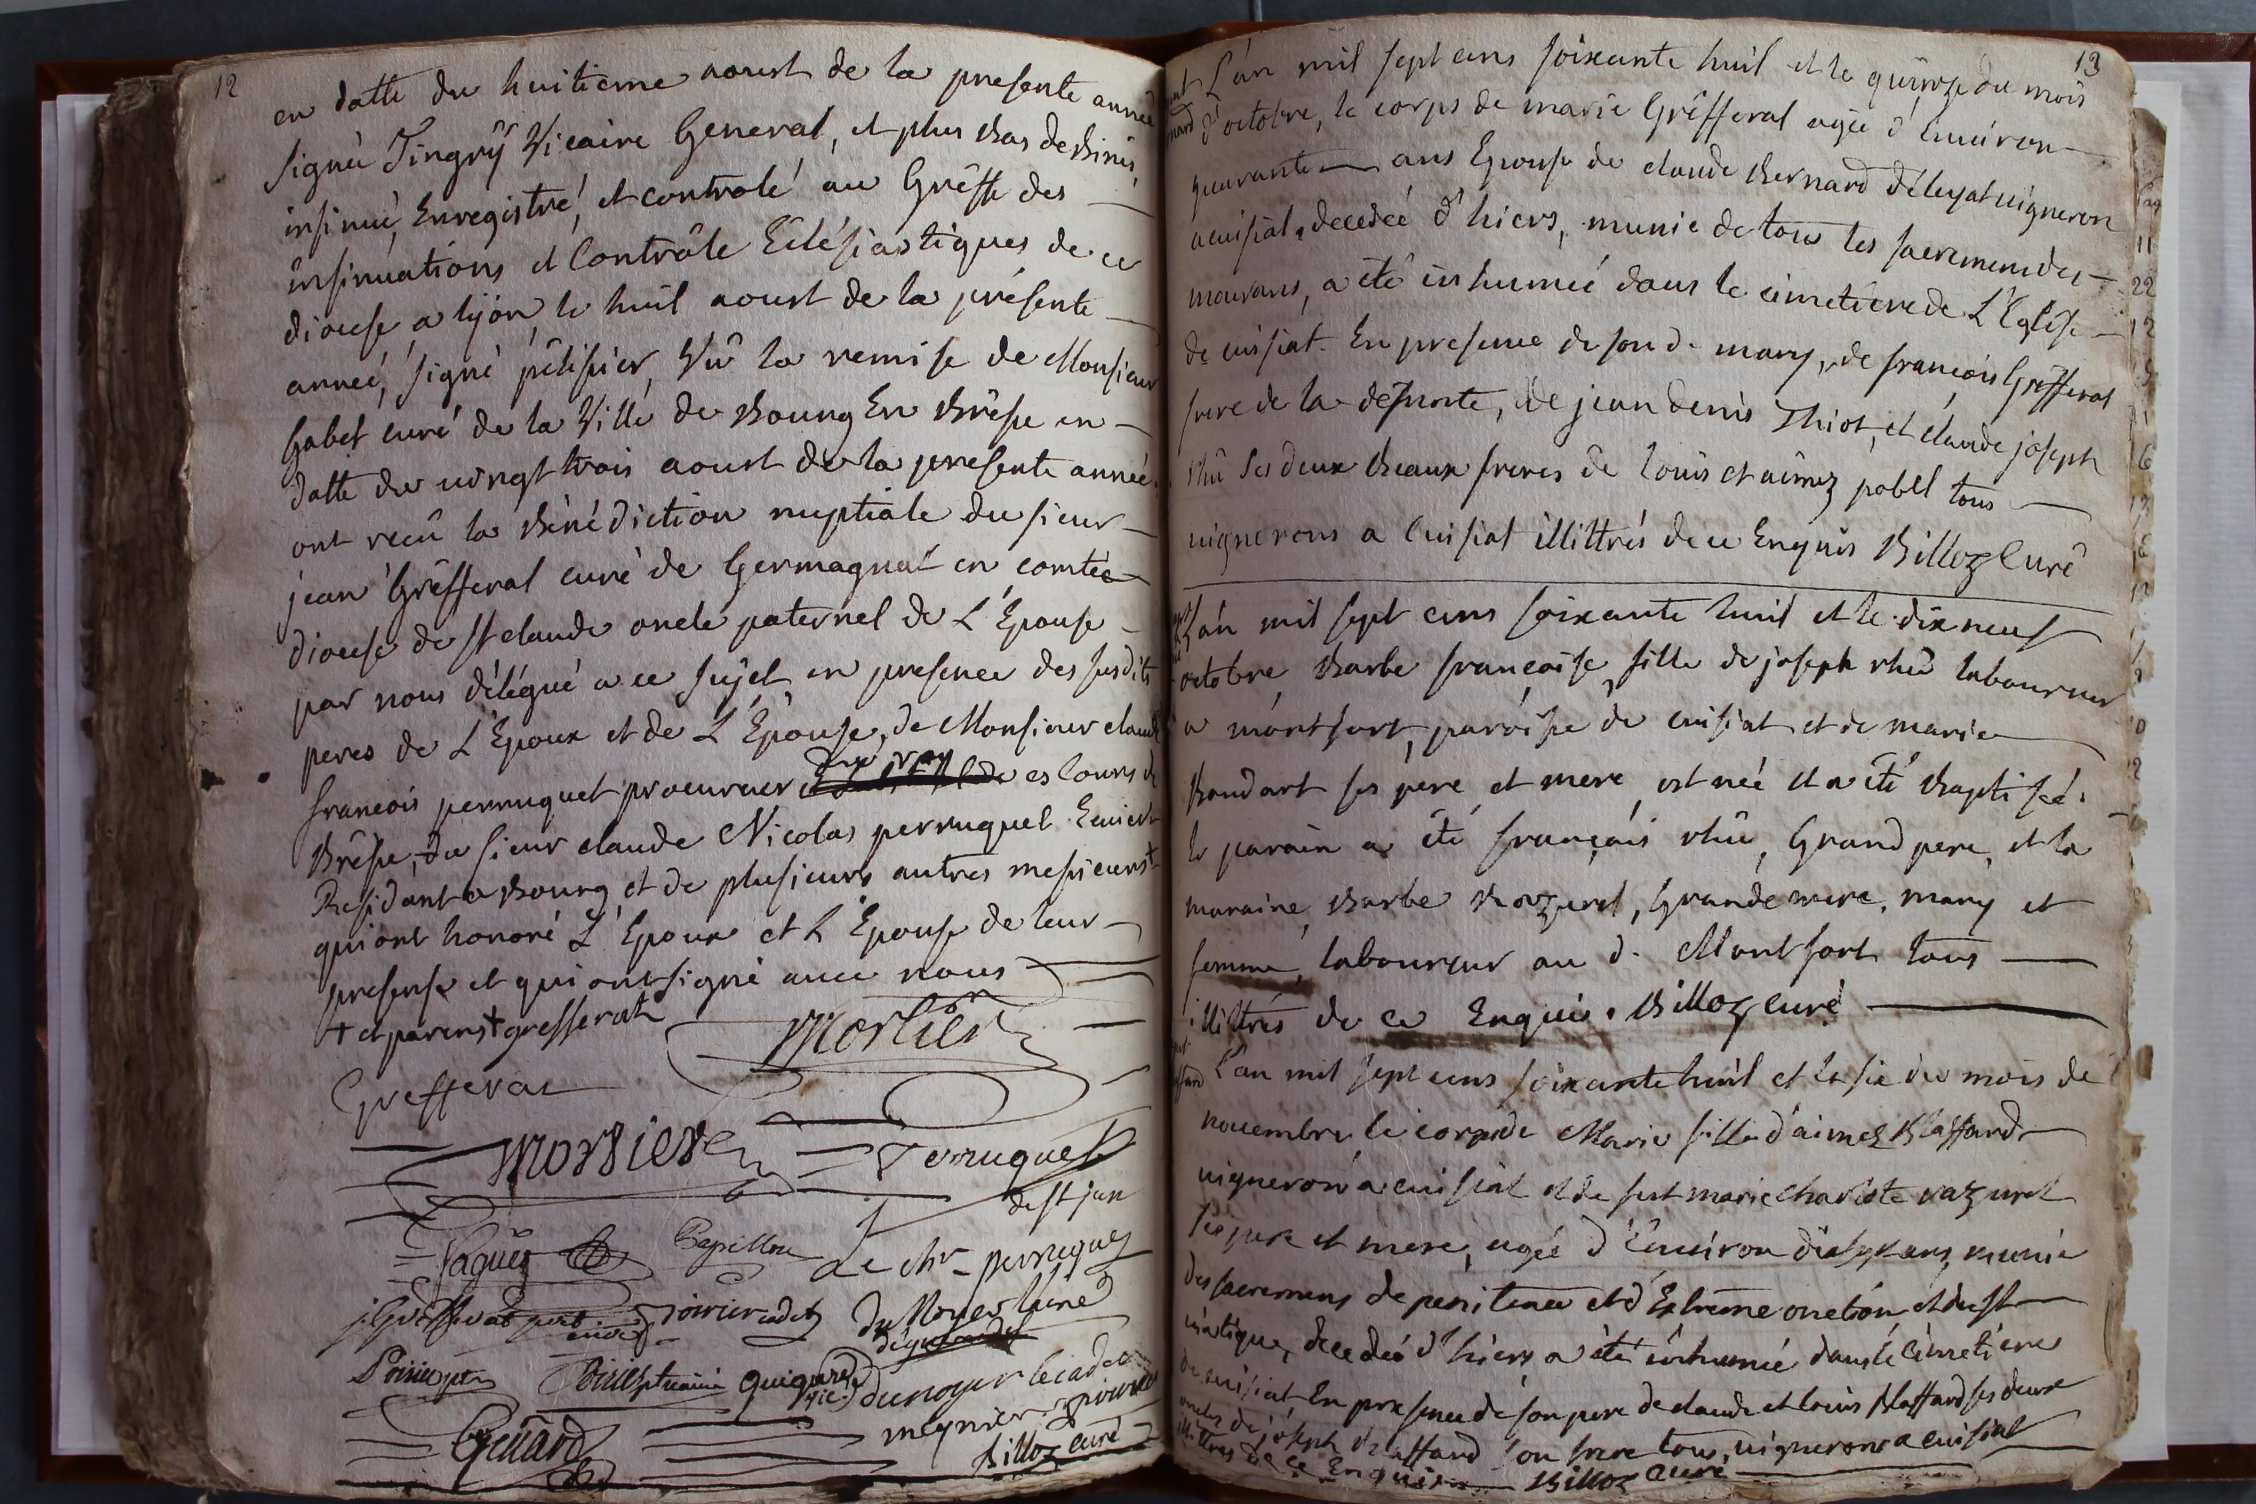 12
en datte du huitieme aoust de la presente année
signé Tingrÿ Vicaire General, et plus bas debinis,
insinué, Enregistré, et controlé au Greffe des
insinuations et Contrôle Eclésiastiques de ce
diocese a lyon le huit aoust de la présente
année, signé pélissier, Vû la remise de Monsieur
Gabet curé de la Ville de Bourg En Brêsse en
datte du vingt trois aoust de la presente année.
ont reçû la Bénédiction nuptiale du sieur
jean Grêfferat curé de Germagnat en comté
diocese de st claude oncle paternel de L'Epouse
par nous délégué a ce sujet, en presence des susdits
peres de L'Epoux et de L'Epouse, de Monsieur claude
francois perruquet procureur du roy es Cours de
Brêsse, du sieur claude Nicolas perruquet Ecuier
Residant a Bourg et de plusieurs autres messieurs +
qui ont honoré L'Epoux et L'Epouse de leur
presense et qui ont signé avec nous
+ et parens + grefferat
Morlier
Grefferat
morlier
Perruquet
de st jan
Papillon
le chr perruquet
j. Grefferat poirier cadet
du Noyer l'ainé
Poirier
Guigard
dunoyer le cadet
meynier
Genard
Billoz curé
13
L'an mil sept cens soixante huit et le quinze du mois
d'octobre, le corps de marie Grêfferat agée d'environ
quarante ans Epouse de claude Bernard déleyat vigneron
a cuisiat, decedeé d'hiers, munie de tous les sacremens des
mourans, a été inhumeé dans le cimetiere de L'Eglise
de cuisiat. En presence de son d. mary, de francois Grêfferat
frere de la défunte, de jean denis Thiot, et claude joseph
rhû ses deux beaux freres de louis et aimez pobel tous
vignerons a Cuisiat illittrés de ce Enquis Billoz Curé
L'an mil sept cens soixante huit et le dix neuf
octobre Barbe francoise, fille de joseph rhû laboureur
a montfort, paroisse de cuisiat et de marie
Bondart ses pere et mere, est neé et a été Baptiseé.
le parain a été français rhû, Grand pere, et la
maraine Barbe Bozurel, Grande mere, mary et
femme, laboureur au d. Montfort tous
illittrés de ce Enquis. Billoz curé
L'an mil sept cens soixante huit et le six du mois de
novembre, le corps de Marie fille d'aimez Blaffard
vigneron a cuisiat et de fut marie charlote vazurel
ses pere et mere, agée d'environ dix sept ans, munie
des sacremens de penitence et d'Extrême onction et du st
viatique, decedeé d'hiers a été inhumeé dans le cimetiere
de cuisiat, En presence de son pere de claude et louis Blaffard ses deux
oncles de joseph Blaffard son frere tous vignerons a cuisiat
illittres de ce Enquis Billoz Curé